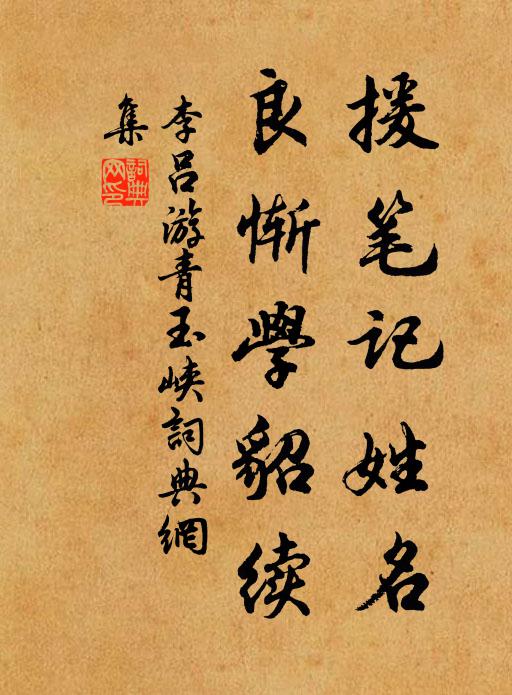 援笔记姓名
良惭學貂续
李吕游青玉峡詞典網
集
詞典
网印